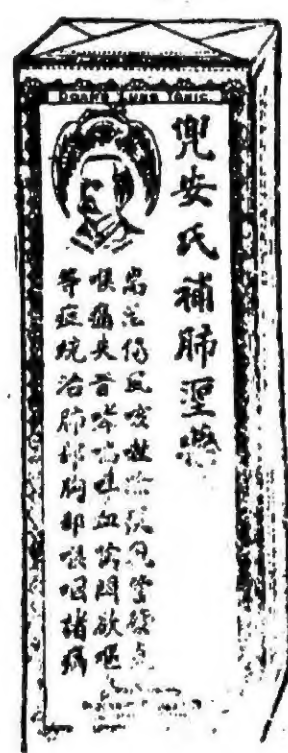 DOANS LUNG TONIC.
兜安氏補肺聖藥
治傷風咳嗽氣管發炎
喉痛失音哮喘吐血胸悶欲嘔
等症統治肺部胸部喉咽諸病